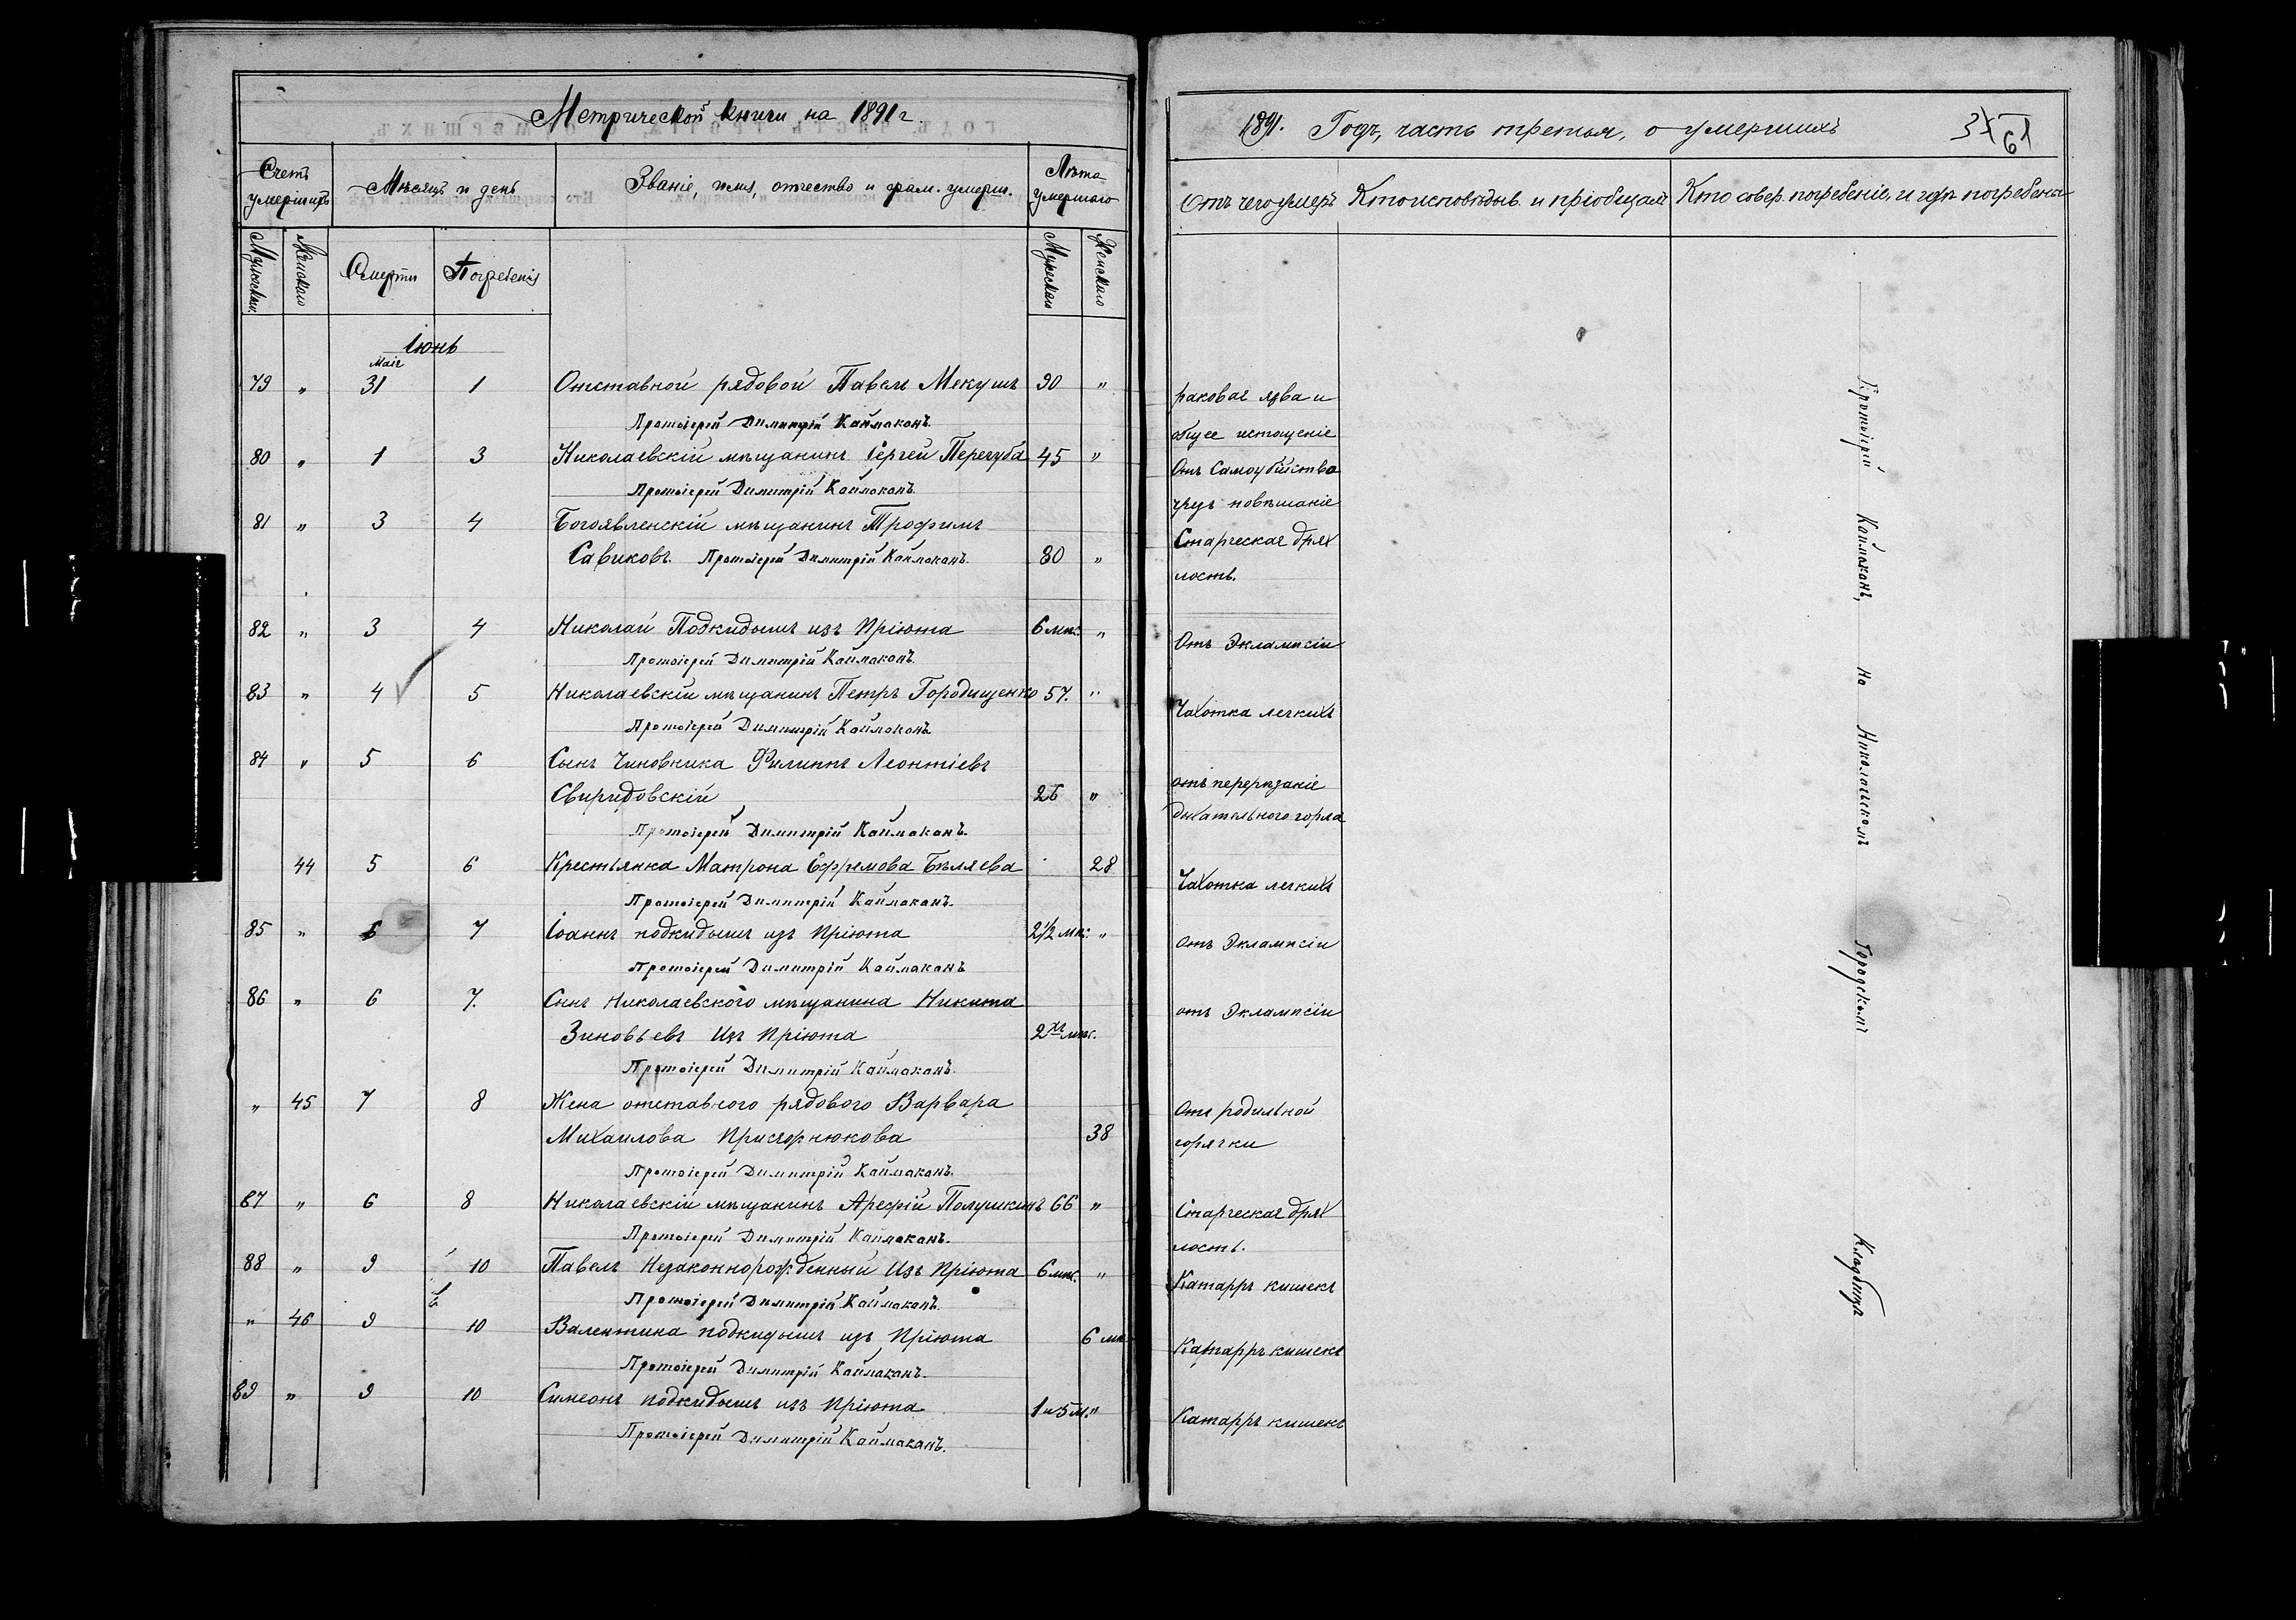 Метрической книги на 1891 г.
Счетъ умершихъ
Мѣсяцъ и день
Званіе, имя, отчество и фам. умерш.
Лѣта умершаго
Мужескаго
Женскаго
Смерти
Погребенія
Мужескаго
Женскаго
Іюнь
Маія
79 „ 31 1 Отставной рядовой Павелъ Мекушъ 90 „
Протоіерей Димитрій Каймаканъ.
80 „ 1 3 Николаевскій мѣщанинъ Сергей Перегуба 45 „
Протоіерей Димитрій Каймаканъ.
81 „ 3 4 Богоявленскій мѣщанинъ Трофимъ
Савиковъ. Протоіерей Димитрій Каймаканъ. 80 „
82 „ 3 4 Николай Подкидышъ изъ Пріюта 6 мѣс. „
Протоіерей Димитрій Каймаканъ.
83 „ 4 5 Николаевскій мѣщанинъ Петръ Городищенко 57. „
Протоіерей Димитрій Каймаканъ
84 „ 5 6 Сынъ Чиновника Филиппъ Леонтіевъ
Свиридовскій 26 „
Протоіерей Димитрій Каймаканъ.
44 5 6 Крестьянка Матрона Ефремова Бѣляева 28
Протоіерей Димитрій Каймаканъ.
85 „ 6 7 Іоаннъ подкидышъ изъ Пріюта 2 1/2 мѣс. „
Протоіерей Димитрій Каймаканъ
86 „ 6 7. Сынъ Николаевского мѣщанина Никита
Зиновьевъ Изъ Пріюта 2хъ мѣс.
Протоіерей Димитрій Каймаканъ.
„ 45 7 8 Жена отставного рядового Варвара
Михаилова 38
Протоіерей Димитрій Каймаканъ.
87 „ 6 8 Николаевскій мѣщанинъ Арефій Полушкинъ 66 „
Протоіерей Димитрій Каймаканъ.
88 „ 9 10 Павелъ Незаконнорожденный Изъ Пріюта 6 мѣс. „
Протоіерей Димитрій Каймаканъ.
„ 46 9 10 Валентина подкидышъ изъ Пріюта 6 мѣс
Протоіерей Димитрій Каймаканъ.
89 „ 9 10 Симеонъ подкидышъ изъ Пріюта 1 и 5 м. „
Протоіерей Димитрій Каймаканъ.
1891. Годъ, часть третья, о умершихъ
61
Отъ чего умеръ
Кто исповѣдыв. и пріобщалъ
Кто совер. погребеніе, и гдѣ погребены
раковая язва и
общее истощеніе
Отъ Самоубійства
чрезъ повѣшаніе
Старческая дрях
лость.
Отъ Эклампсіи
Чахотка легкихъ
отъ перерѣзаніе
дыхательного горла
Чахотка легкихъ
отъ Эклампсіи
отъ Эклампсіи
Отъ родильной
горячки
Старческая дрях
лость.
Катарръ кишекъ
Катарръ кишекъ
Катарръ кишекъ
Протоіерей Каймаканъ, На Николаевскомъ Городскомъ Кладбищѣ